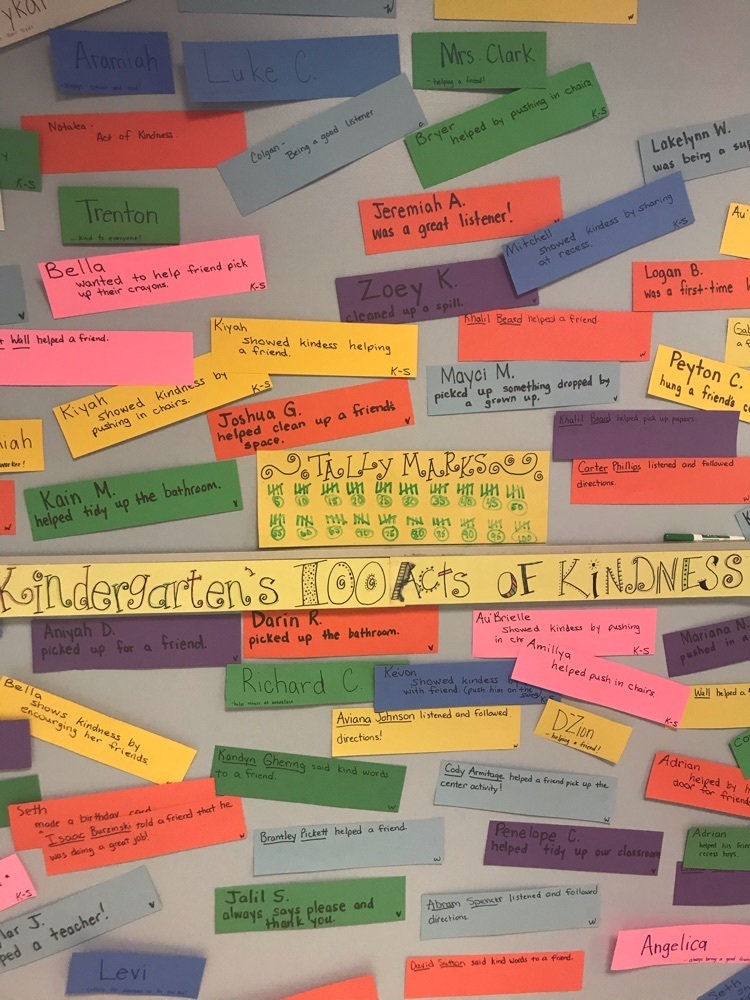 Aramiah
Luke C.
Mrs. Clark
- helping a friend!
Natalea -
Act of Kindness.
Colgan -
Being a good listener
Bryer
helped by pushing in chairs
K-S
Lakelynn W.
was being a
K-S
Trenton
- kind to everyone!
Jeremiah A.
was a great listener!
Mitchell
showed kindess by sharing
at recess.
K-S
Bella
wanted to help friend pick
up their crayons.
K-S
Zoey K.
cleaned up a spill.
Logan B.
was a first-time
Khalil Beard helped a friend.
w
Wall helped a friend.
Kiyah
showed kindess helping
a friend.
K-S
Kiyah
showed kindness by
pushing in chairs.
K-S
Mayci M.
picked up something dropped by
a grown up.
v
Peyton C.
hung a friend's
Joshua G.
helped clean up a friend's
space.
v
Khalil Beard helped pick up papers
Carter Phillips listened and followed
directions.
Kain M.
helped tidy up the bathroom.
v
TALLY MARKS
5 10 15 20 25 30 35 40 45 50
55 60 65 70 75 80 85 90 95 100
Kindergarten's 100 Acts OF KiNDNESS
Aniyah D.
picked up for a friend.
Darin R.
picked up the bathroom.
v
Au'Brielle
Showed kindess by pushing
in
K-S
Mariana N.
pushed in a
Amillya
helped push in chairs.
K-S
Richard C.
Kevon
showed kindess
with friend. (push him on the
Wall helped a
Bella
shows kindness by
encouraging her friends.
Aviana Johnson listened and followed
directions!
w
DZion
- helping a friend!
Kamdyn Ghering said kind words
to a friend.
w
Cody Armitage helped a friend pick up the
center activity!
w
Adrian
helped by
door for friend
Seth
made a birthday card
Isaac Burzinski told a friend that he
was doing a great job!
w
Brantley Pickett helped a friend.
w
Penelope C.
helped tidy up our classroom
Adrian
helped his
recess toys.
K-S
J.
a teacher!
v
Jalil S.
always says please and
thank you.
v
Abram Spencer listened and followed
directions.
w
Angelica
Levi
David Sutton said kind words to a friend.
w